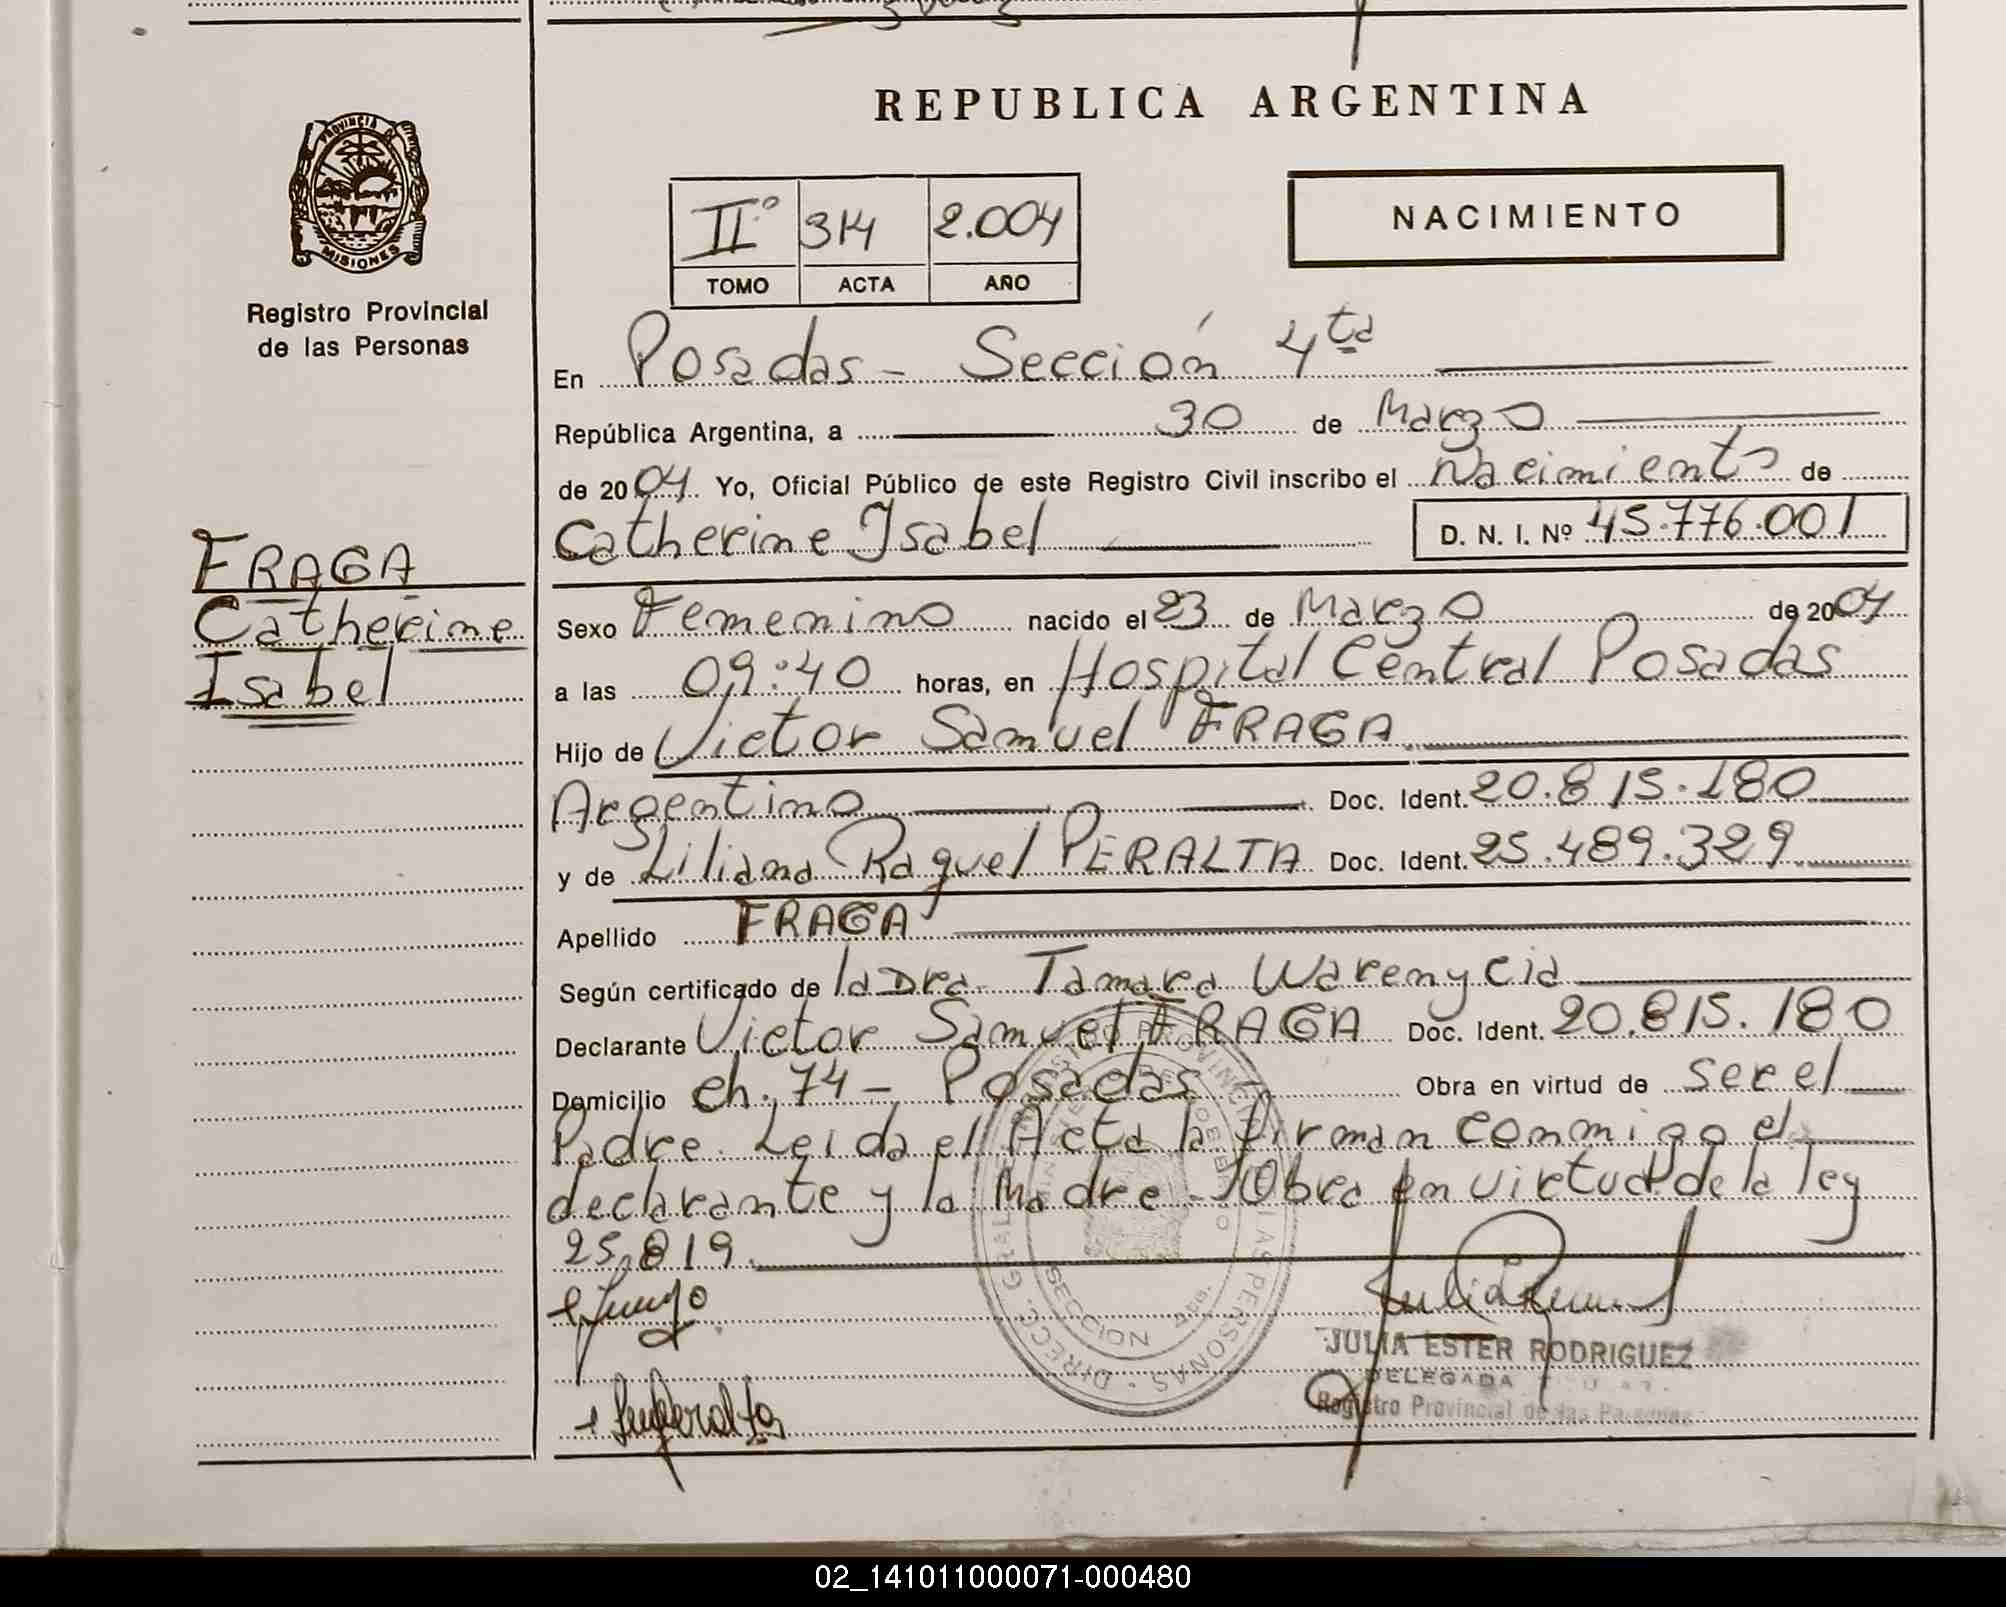 REPUBLICA ARGENTINA
PROVINCIA DE
MISIONES
Registro Provincial
de las Personas
IIº 314 2.004
TOMO ACTA AÑO
NACIMIENTO
En Posadas - Sección 4ta
República Argentina, a 30 de Marzo
de 2004 Yo, Oficial Público de este Registro Civil inscribo el Nacimiento de
Catherine Isabel D. N. I. Nº 45.776.001
FRAGA
Catherine
Isabel
Sexo Femenino nacido el 23 de Marzo de 2004
a las 09:40 horas, en Hospital Central Posadas
Hijo de Victor Samuel FRAGA
Argentino Doc. Ident. 20.815.180
y de Liliana Raquel PERALTA Doc. Ident. 25.489.329
Apellido FRAGA
Según certificado de la Dra. Tamara Warenycia
Declarante Victor Samuel FRAGA Doc. Ident. 20.815.180
Domicilio ch. 74 - Posadas Obra en virtud de ser el
Padre. Leida el Acta la firman conmigo el
declarante y la Madre. Obra en virtud de la ley
25.819.
JULIA ESTER RODRIGUEZ
DELEGADA
Registro Provincial de las Personas
02_141011000071-000480